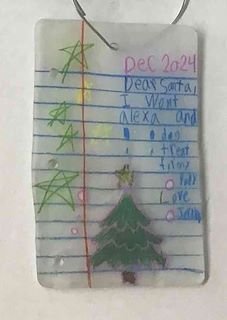 Dec 2024
Dear Santa,
I want
alexa and
dog
treat
Love